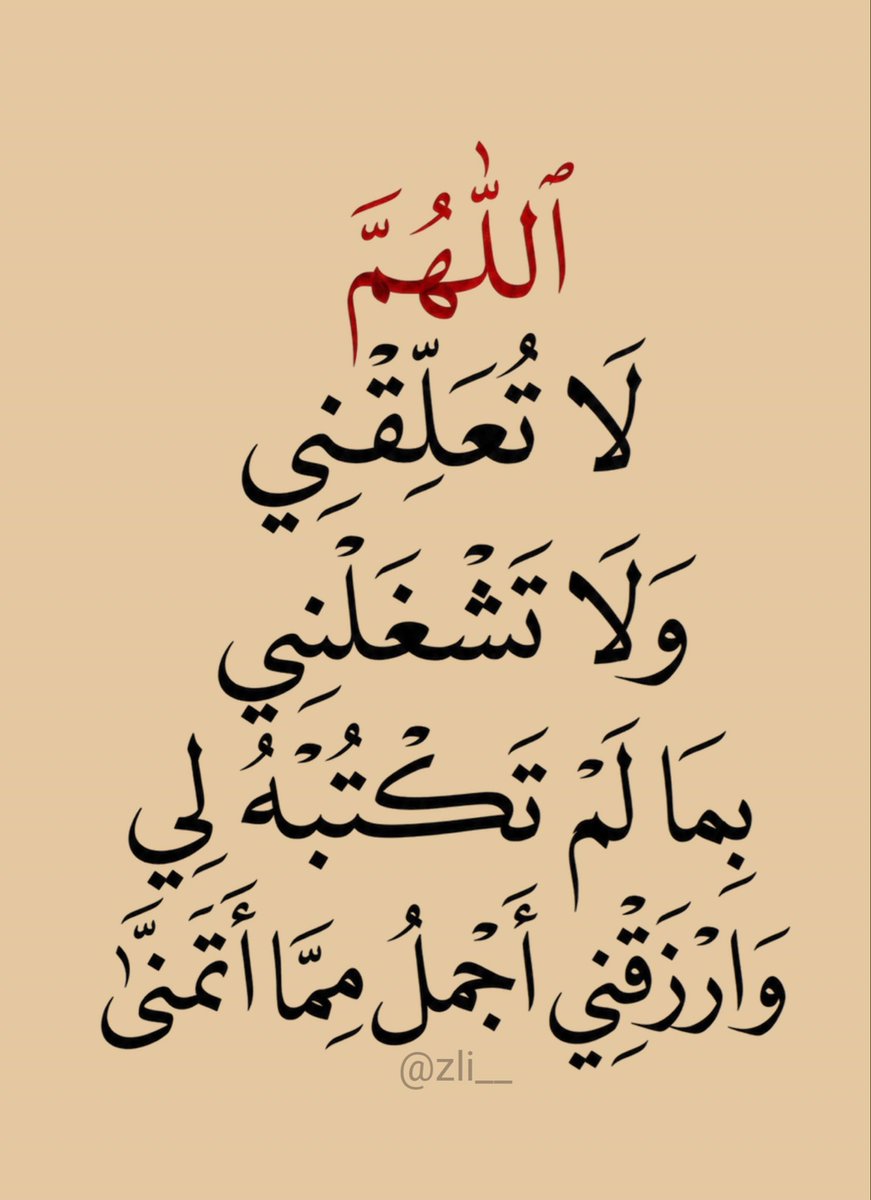 ٱللّٰهُمَّ
لَا تُعَلِّقْنِي
وَلَا تَشْغَلْنِي
بِمَا لَمْ تَكْتُبْهُ لِي
وَارْزَقْنِي أَجْملُ مِمَّا أَتَمَنَّىٰ
@zli__